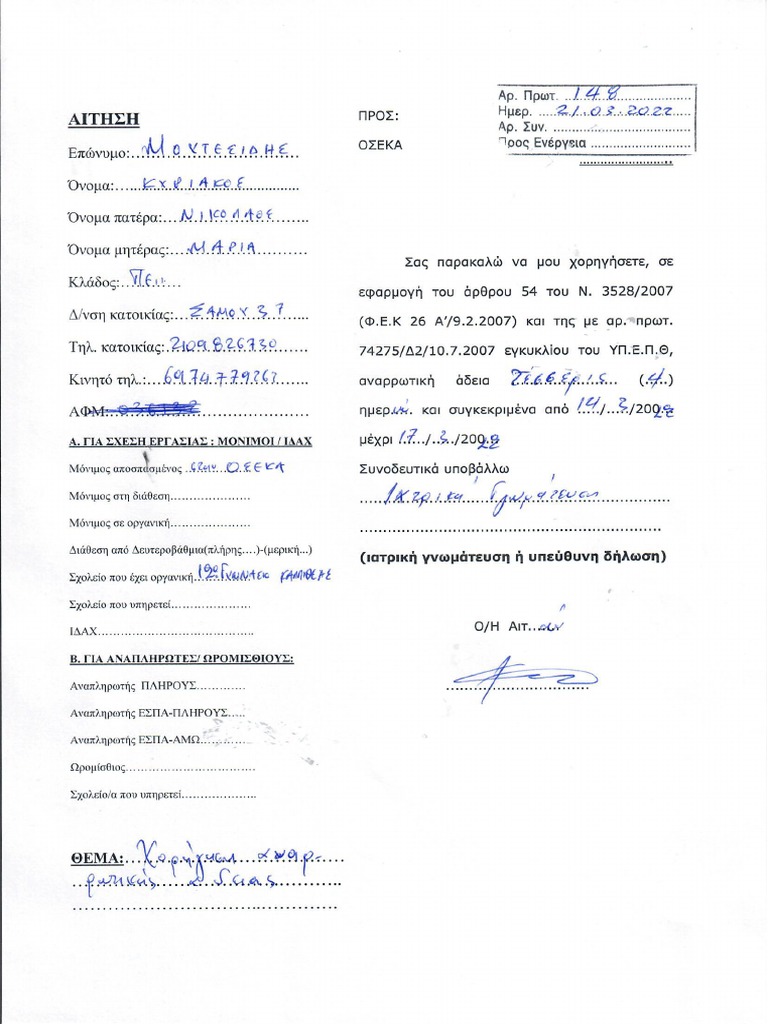 ΑΙΤΗΣΗ
Επώνυμο:...ΜΟΥΤΕΣΙΔΗΣ...
Όνομα:......ΚΥΡΙΑΚΟΣ...............
Όνομα πατέρα:...ΝΙΚΟΛΑΟΣ.......
Όνομα μητέρας:...ΜΑΡΙΑ............
Κλάδος:...
Δ/νση κατοικίας:...ΣΑΜΟΥ 37...
Τηλ. κατοικίας: 2109826730
Κινητό τηλ.:...
ΑΦΜ:
Α. ΓΙΑ ΣΧΕΣΗ ΕΡΓΑΣΙΑΣ : ΜΟΝΙΜΟΙ / ΙΔΑΧ
Μόνιμος αποσπασμένος στην ΟΣΕΚΑ
Μόνιμος στη διάθεση........................
Μόνιμος σε οργανική........................
Διάθεση από Δευτεροβάθμια(πλήρης....)-(μερική...)
Σχολείο που έχει οργανική. ΓΥΜΝΑΣΙΟ ΚΑΛΛΙΘΕΑΣ
Σχολείο που υπηρετεί........................
ΙΔΑΧ.............................................
Β. ΓΙΑ ΑΝΑΠΛΗΡΩΤΕΣ/ ΩΡΟΜΙΣΘΙΟΥΣ:
Αναπληρωτής ΠΛΗΡΟΥΣ..............
Αναπληρωτής ΕΣΠΑ-ΠΛΗΡΟΥΣ.....
Αναπληρωτής ΕΣΠΑ-ΑΜΩ..............
Ωρομίσθιος.....................................
Σχολείο/α που υπηρετεί......................
ΘΕΜΑ: Χορήγηση αναρ-
ρωτικής αδειας
ΠΡΟΣ:
ΟΣΕΚΑ
Αρ. Πρωτ. 148
Ημερ. 21.03.2022
Αρ. Συν. ..............................
Προς Ενέργεια ......................
Σας παρακαλώ να μου χορηγήσετε, σε
εφαρμογή του άρθρου 54 του Ν. 3528/2007
(Φ.Ε.Κ 26 Α'/9.2.2007) και της με αρ. πρωτ.
74275/Δ2/10.7.2007 εγκυκλίου του ΥΠ.Ε.Π.Θ,
αναρρωτική άδεια τέσσερις (.4.)
ημερ... και συγκεκριμένα από 14/.3/200
μέχρι 17/.3/200
Συνοδευτικά υποβάλλω
Ιατρική Γνωμάτευση
(ιατρική γνωμάτευση ή υπεύθυνη δήλωση)
Ο/Η Αιτ...ών